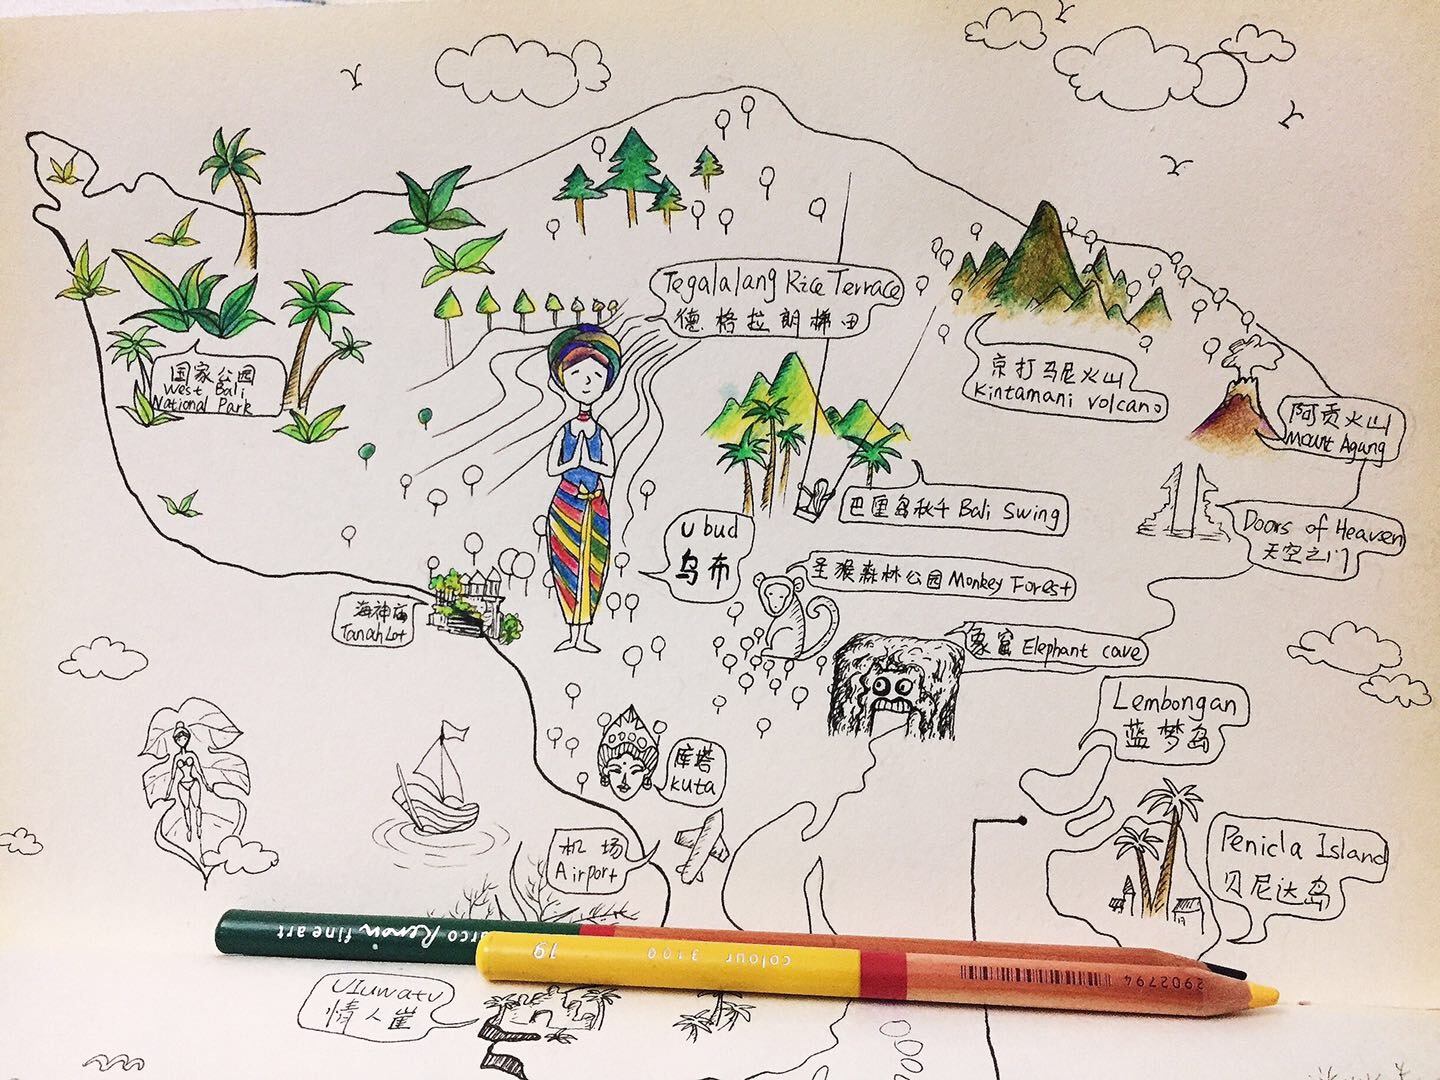 Tegalalang Rice Terrace
德格拉朗梯田
国家公园
West Bali
National Park
京打马尼火山
Kintamani volcano
阿贡火山
Mount Agung
巴厘岛秋千 Bali Swing
Doors of Heaven
天空之门
Ubud
乌布
圣猴森林公园 Monkey Forest
海神庙
Tanah Lot
象窟 Elephant cave
Lembongan
蓝梦岛
库塔
Kuta
机场
Airport
Penicla Island
贝尼达岛
arco Renoir fine art
colour 3100 19
2902794
Uluwatu
情人崖